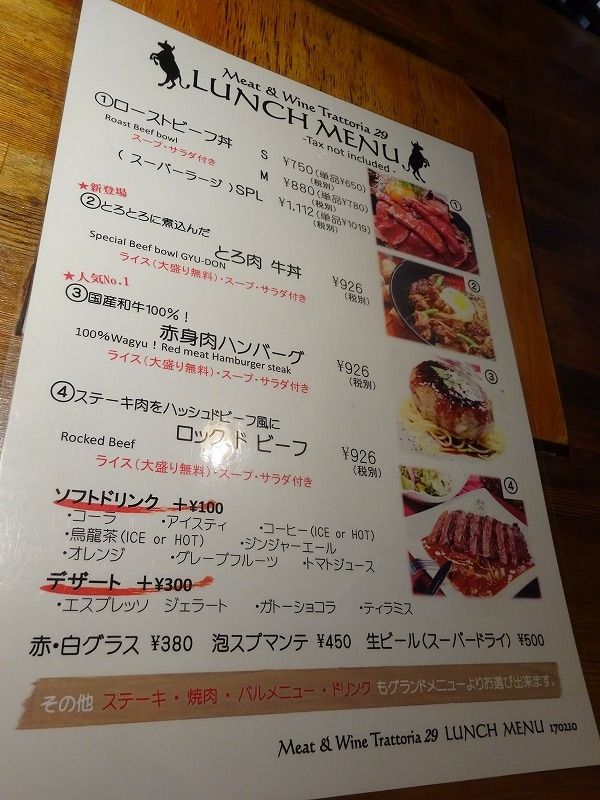 Meat & Wine Trattoria 29
LUNCH MENU
-Tax not included.
①ローストビーフ丼 S ¥750(単品¥650)
Roast Beef bowl (税別)
スープ・サラダ付き M ¥880(単品¥780)
(税別)
(スーパーラージ)SPL ¥1,112(単品¥1019)
(税別)
①
★新登場
②とろとろに煮込んだ
Special Beef bowl GYU-DON とろ肉 牛丼 ¥926
ライス(大盛り無料)・スープ・サラダ付き (税別)
②
★人気No.1
③国産和牛100%!
赤身肉ハンバーグ
100%Wagyu! Red meat Hamburger steak ¥926
ライス(大盛り無料)・スープ・サラダ付き (税別)
③
④ステーキ肉をハッシュドビーフ風に
Rocked Beef ロックド ビーフ ¥926
ライス(大盛り無料)・スープ・サラダ付き (税別)
④
ソフトドリンク +¥100
・コーラ ・アイスティ ・コーヒー(ICE or HOT)
・烏龍茶(ICE or HOT) ・ジンジャーエール
・オレンジ ・グレープフルーツ ・トマトジュース
デザート +¥300
・エスプレッソ ジェラート ・ガトーショコラ ・ティラミス
赤・白グラス ¥380 泡スプマンテ ¥450 生ビール(スーパードライ) ¥500
その他 ステーキ・焼肉・バルメニュー・ドリンク もグランドメニューよりお選び出来ます。
Meat & Wine Trattoria 29 LUNCH MENU 170210